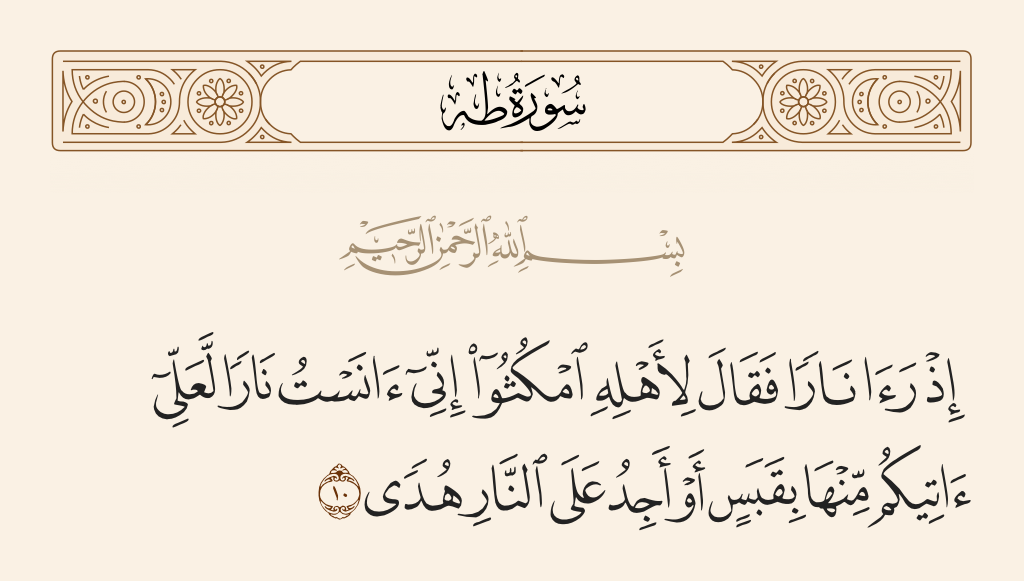 سُورَةُ طه
بِسْمِ ٱللَّهِ ٱلرَّحْمَٰنِ ٱلرَّحِيمِ
إِذْ رَءَا نَارًا فَقَالَ لِأَهْلِهِ ٱمْكُثُوٓا۟ إِنِّىٓ ءَانَسْتُ نَارًا لَّعَلِّىٓ
ءَاتِيكُم مِّنْهَا بِقَبَسٍ أَوْ أَجِدُ عَلَى ٱلنَّارِ هُدًى ١٠